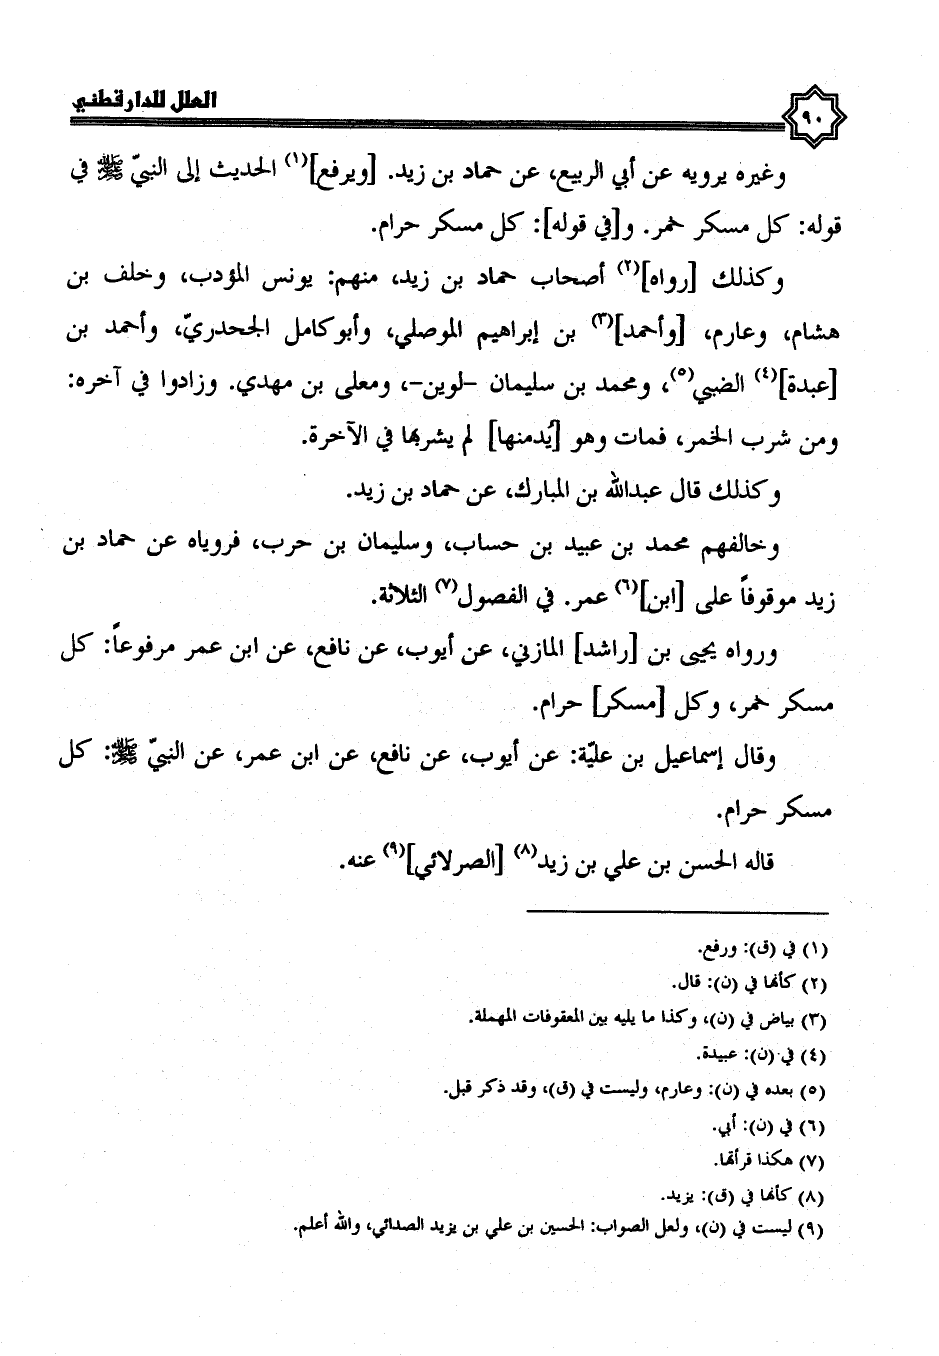 العلل للدارقطني
٩٠
وغيره يرويه عن أبي الربيع، عن حماد بن زيد. [ويرفع](١) الحديث إلى النبيّ ﷺ في
قوله: كل مسكر خمر. و[في قوله]: كل مسكر حرام.
وكذلك [رواه](٢) أصحاب حماد بن زيد، منهم: يونس المؤدب، وخلف بن
هشام، وعارم، [وأحمد](٣) بن إبراهيم الموصلي، وأبوكامل الجحدريّ، وأحمد بن
[عبدة](٤) الضبي(٥)، ومحمد بن سليمان -لوين-، ومعلى بن مهدي. وزادوا في آخره:
ومن شرب الخمر، فمات وهو [يُدمنها] لم يشربها في الآخرة.
وكذلك قال عبدالله بن المبارك، عن حماد بن زيد.
وخالفهم محمد بن عبيد بن حساب، وسليمان بن حرب، فروياه عن حماد بن
زيد موقوفاً على [ابن](٦) عمر. في الفصول(٧) الثلاثة.
ورواه يحيى بن [راشد] المازني، عن أيوب، عن نافع، عن ابن عمر مرفوعاً: كل
مسكر خمر، وكل [مسكر] حرام.
وقال إسماعيل بن عليّة: عن أيوب، عن نافع، عن ابن عمر، عن النبيّ ﷺ: كل
مسكر حرام.
قاله الحسن بن علي بن زيد(٨) [الصرلائي](٩) عنه.
(١) في (ق): ورفع.
(٢) كأنها في (ن): قال.
(٣) بياض في (ن)، وكذا ما يليه بين المعقوفات المهملة.
(٤) في (ن): عبيدة.
(٥) بعده في (ن): وعارم، وليست في (ق)، وقد ذكر قبل.
(٦) في (ن): أبي.
(٧) هكذا قرأتها.
(٨) كأنها في (ق): يزيد.
(٩) ليست في (ن)، ولعل الصواب: الحسين بن علي بن يزيد الصدائي، والله أعلم.